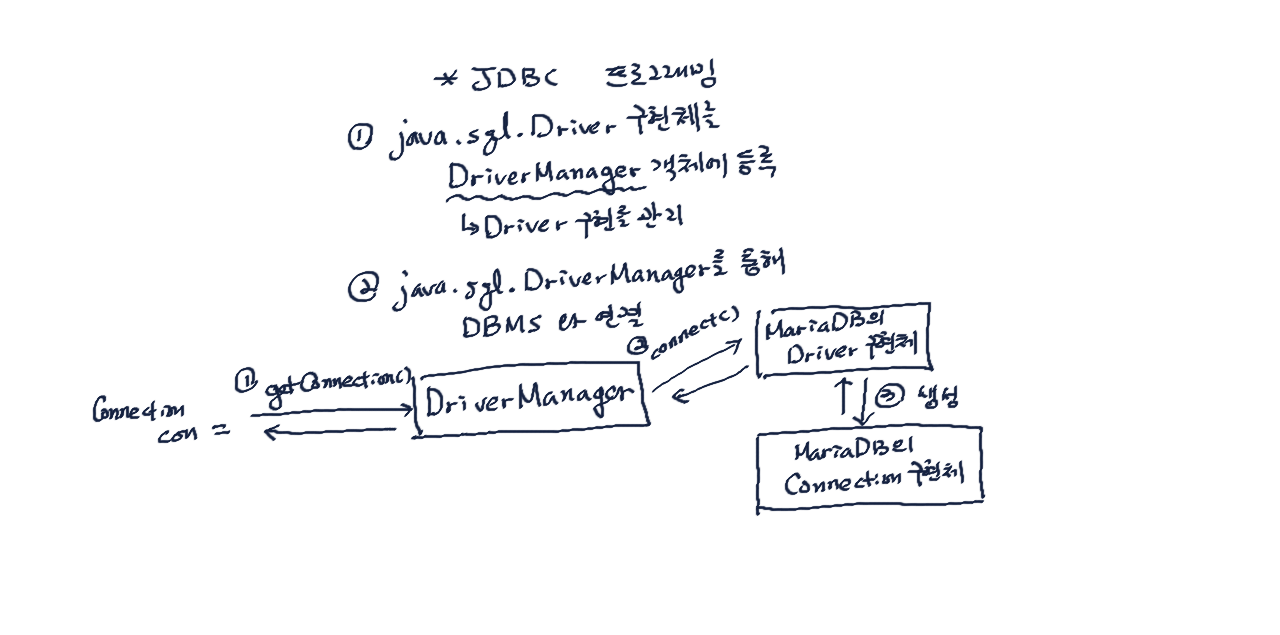 * JDBC 프로그래밍
① java.sql.Driver 구현체를
DriverManager 객체에 등록
↳ Driver 구현를 관리
② java.sql.DriverManager를 통해
DBMS 와 연결
② connect()
MariaDB의
Driver 구현체
① getConnection()
DriverManager
Connection
con =
③ 생성
MariaDB의
Connection 구현체